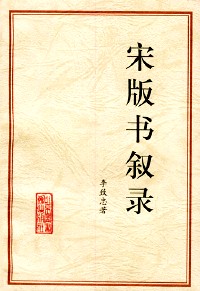 宋版书叙录
李致忠著